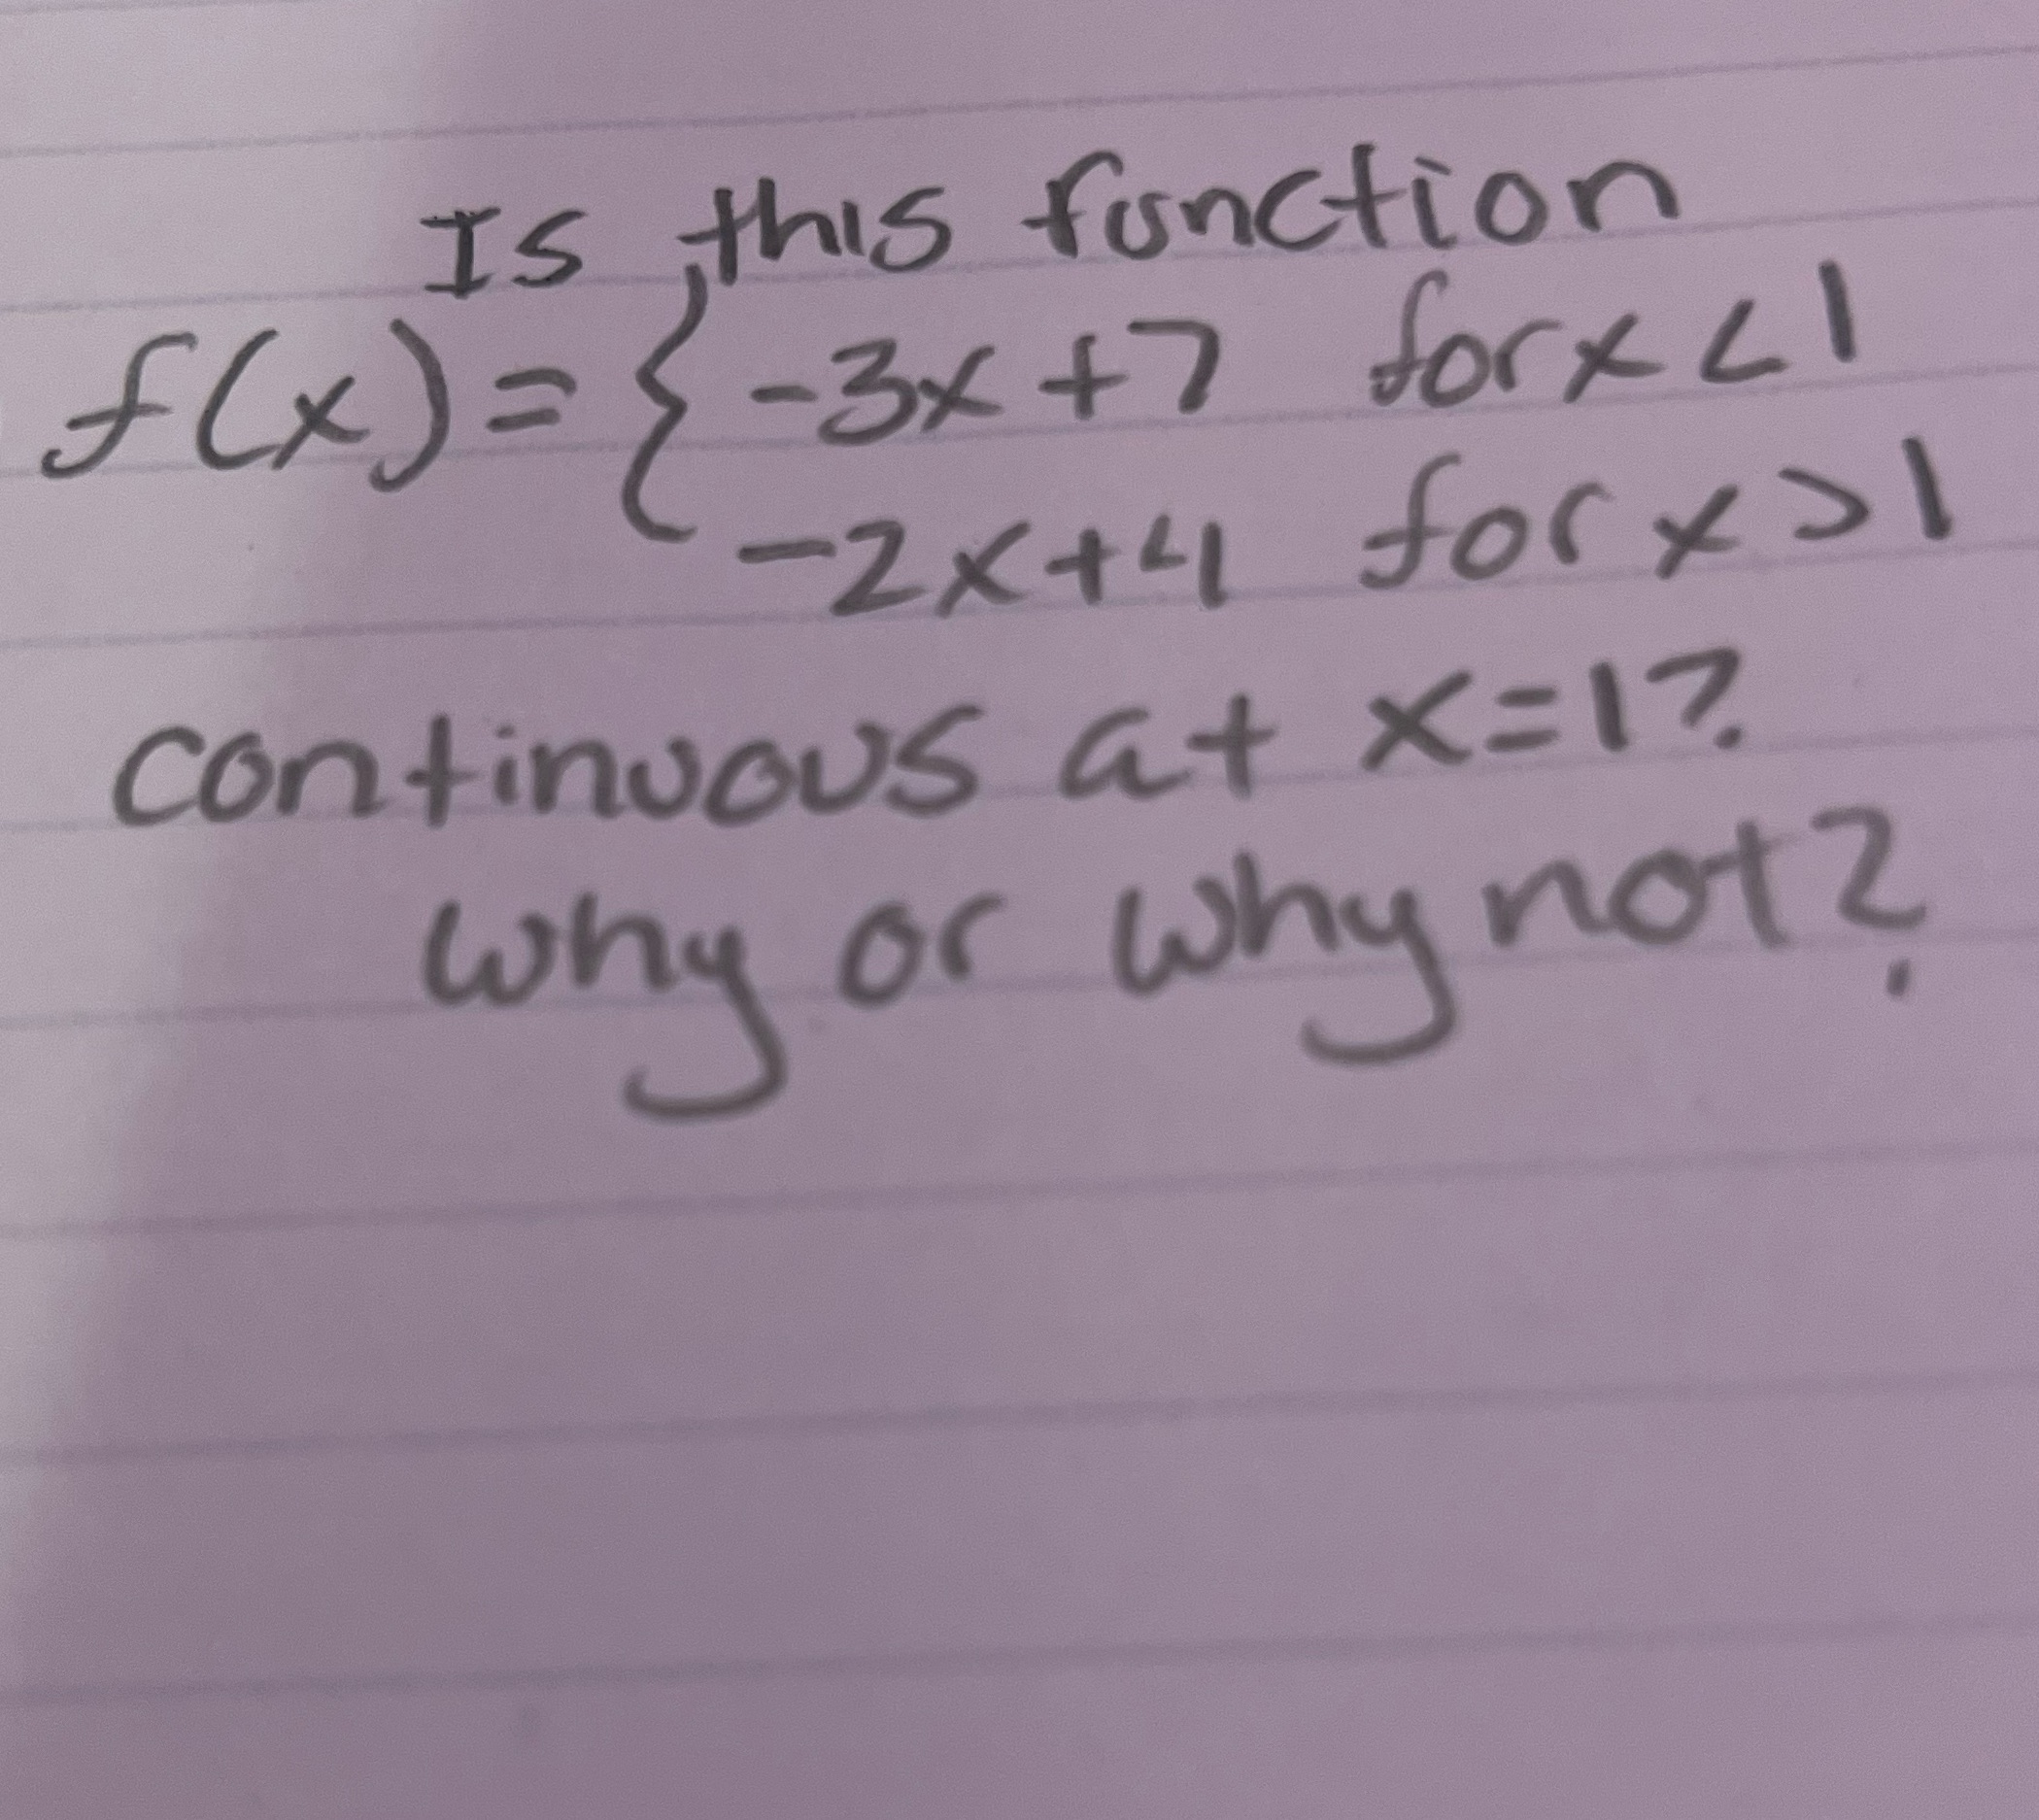 Is this function
f(x) = { -3x + 7 for x < 1
-2x + 4 for x > 1
continuous at x = 1?
why or why not?